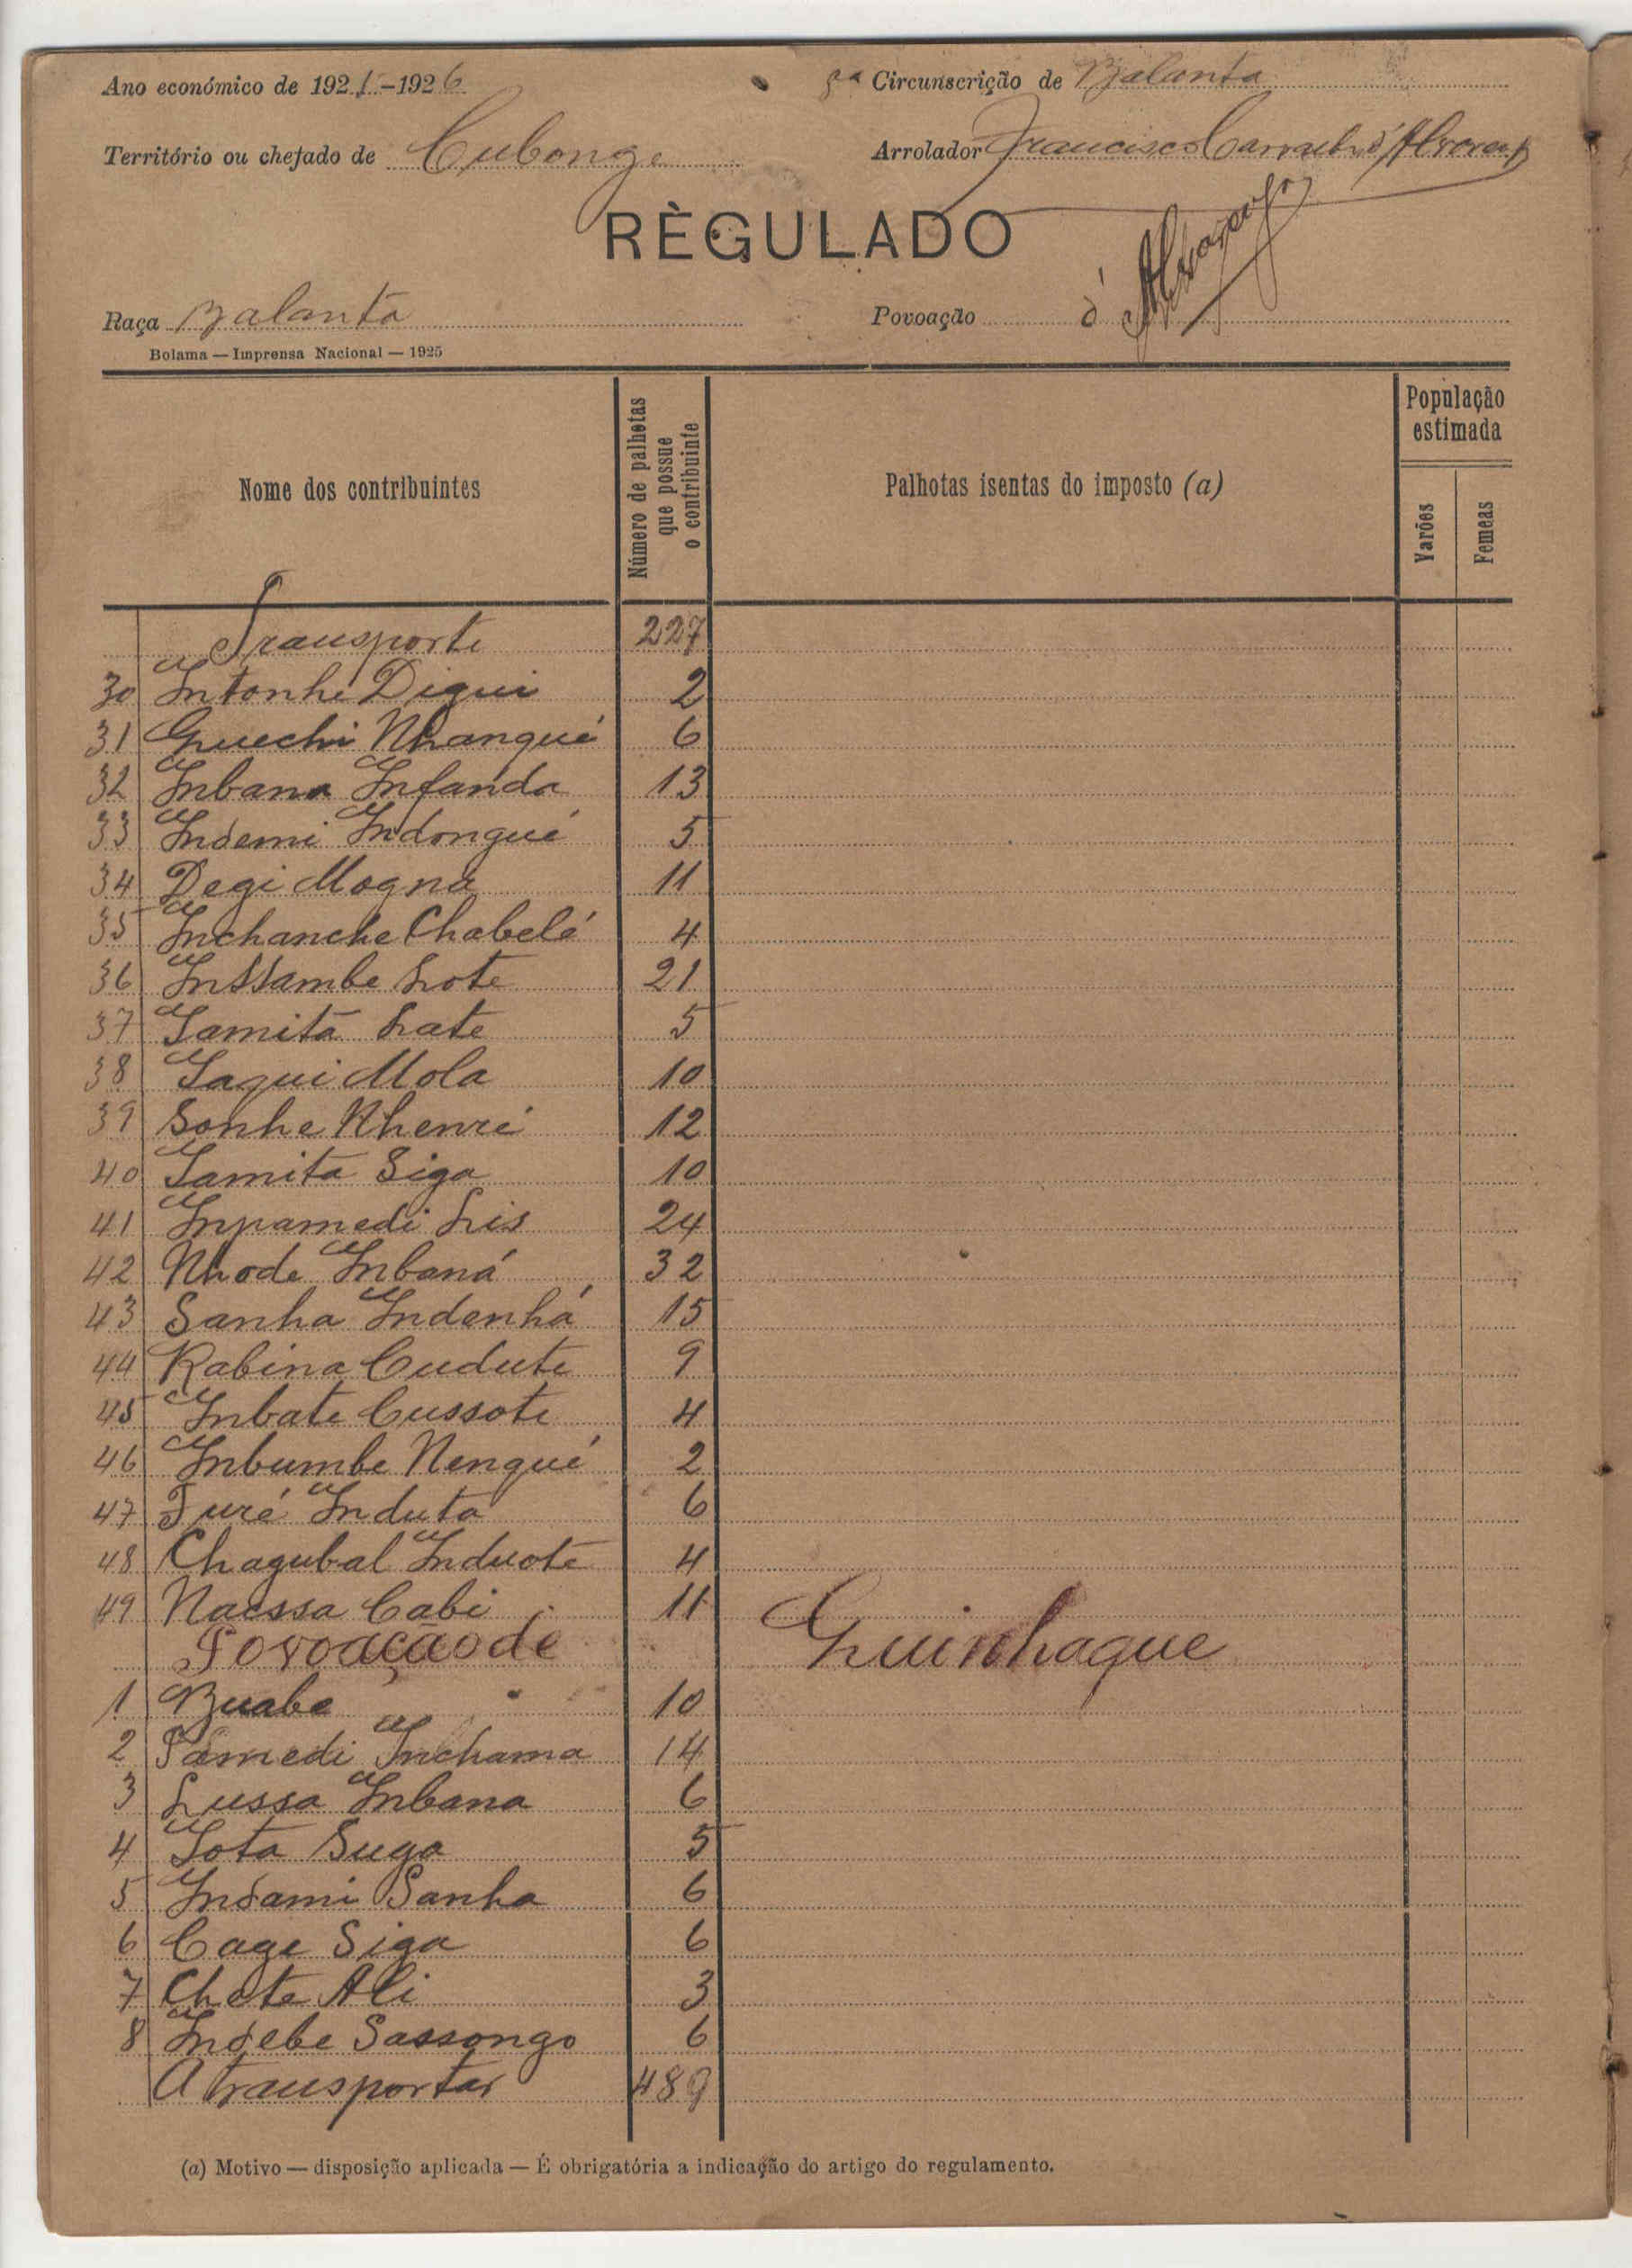 Ano económico de 1921-1926 8ª Circunscrição de Balanta
Território ou chefado de Cubonge Arrolador Francisco d'Alvarenga
RÈGULADO
Raça Balanta Povoação d'Alvarenga
Bolama — Imprensa Nacional — 1925
Nome dos contribuintes
Número de palhotas que possue o contribuinte
Palhotas isentas do imposto (a)
População estimada
Varões
Femeas
Transporte 227
30 Intonhe Digui 2
31 Guechi Nhangué 6
32 Inbana Infanda 13
33 Indemi Indongué 5
34 Degi Mogna 11
35 Inchanche Chabelé 4
36 Inssambe Lote 21
37 Tamita Late 5
38 Taqui Mola 10
39 Sonhe Nhenré 12
40 Tamita Siga 10
41 Inpamedi Lis 24
42 Nhode Inbaná 32
43 Sanha Indenhá 15
44 Rabina Cudute 9
45 Inbate Cussote 4
46 Inbumbe Nengué 2
47 Turé Induta 6
48 Chagubal Induote 4
49 Naessa Cabi 11
Povoação de Guinhaque
1 Buabe 10
2 Samedi Inchama 14
3 Lussa Inbana 6
4 Tota Suga 5
5 Indami Sanha 6
6 Cage Siga 6
7 Chete Ali 3
8 Indebe Sassongo 6
A transportar 489
(a) Motivo — disposição aplicada — É obrigatória a indicação do artigo do regulamento.